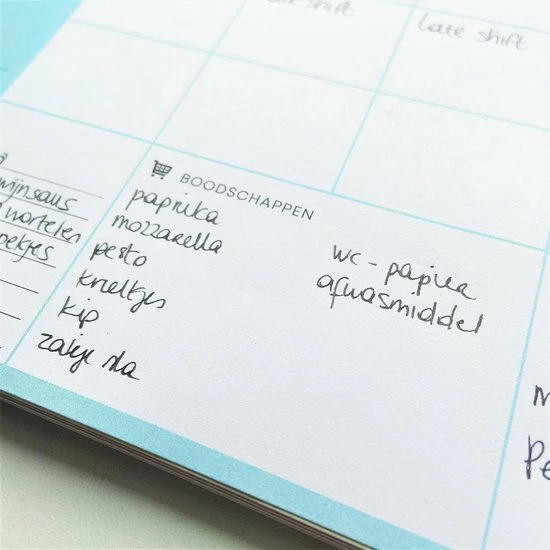 shift
late shift
wijnsaus
wortelen
BOODSCHAPPEN
paprika
mozzarella
pesto
krieltjes
kip
zakje sla
wc-papier
afwasmiddel